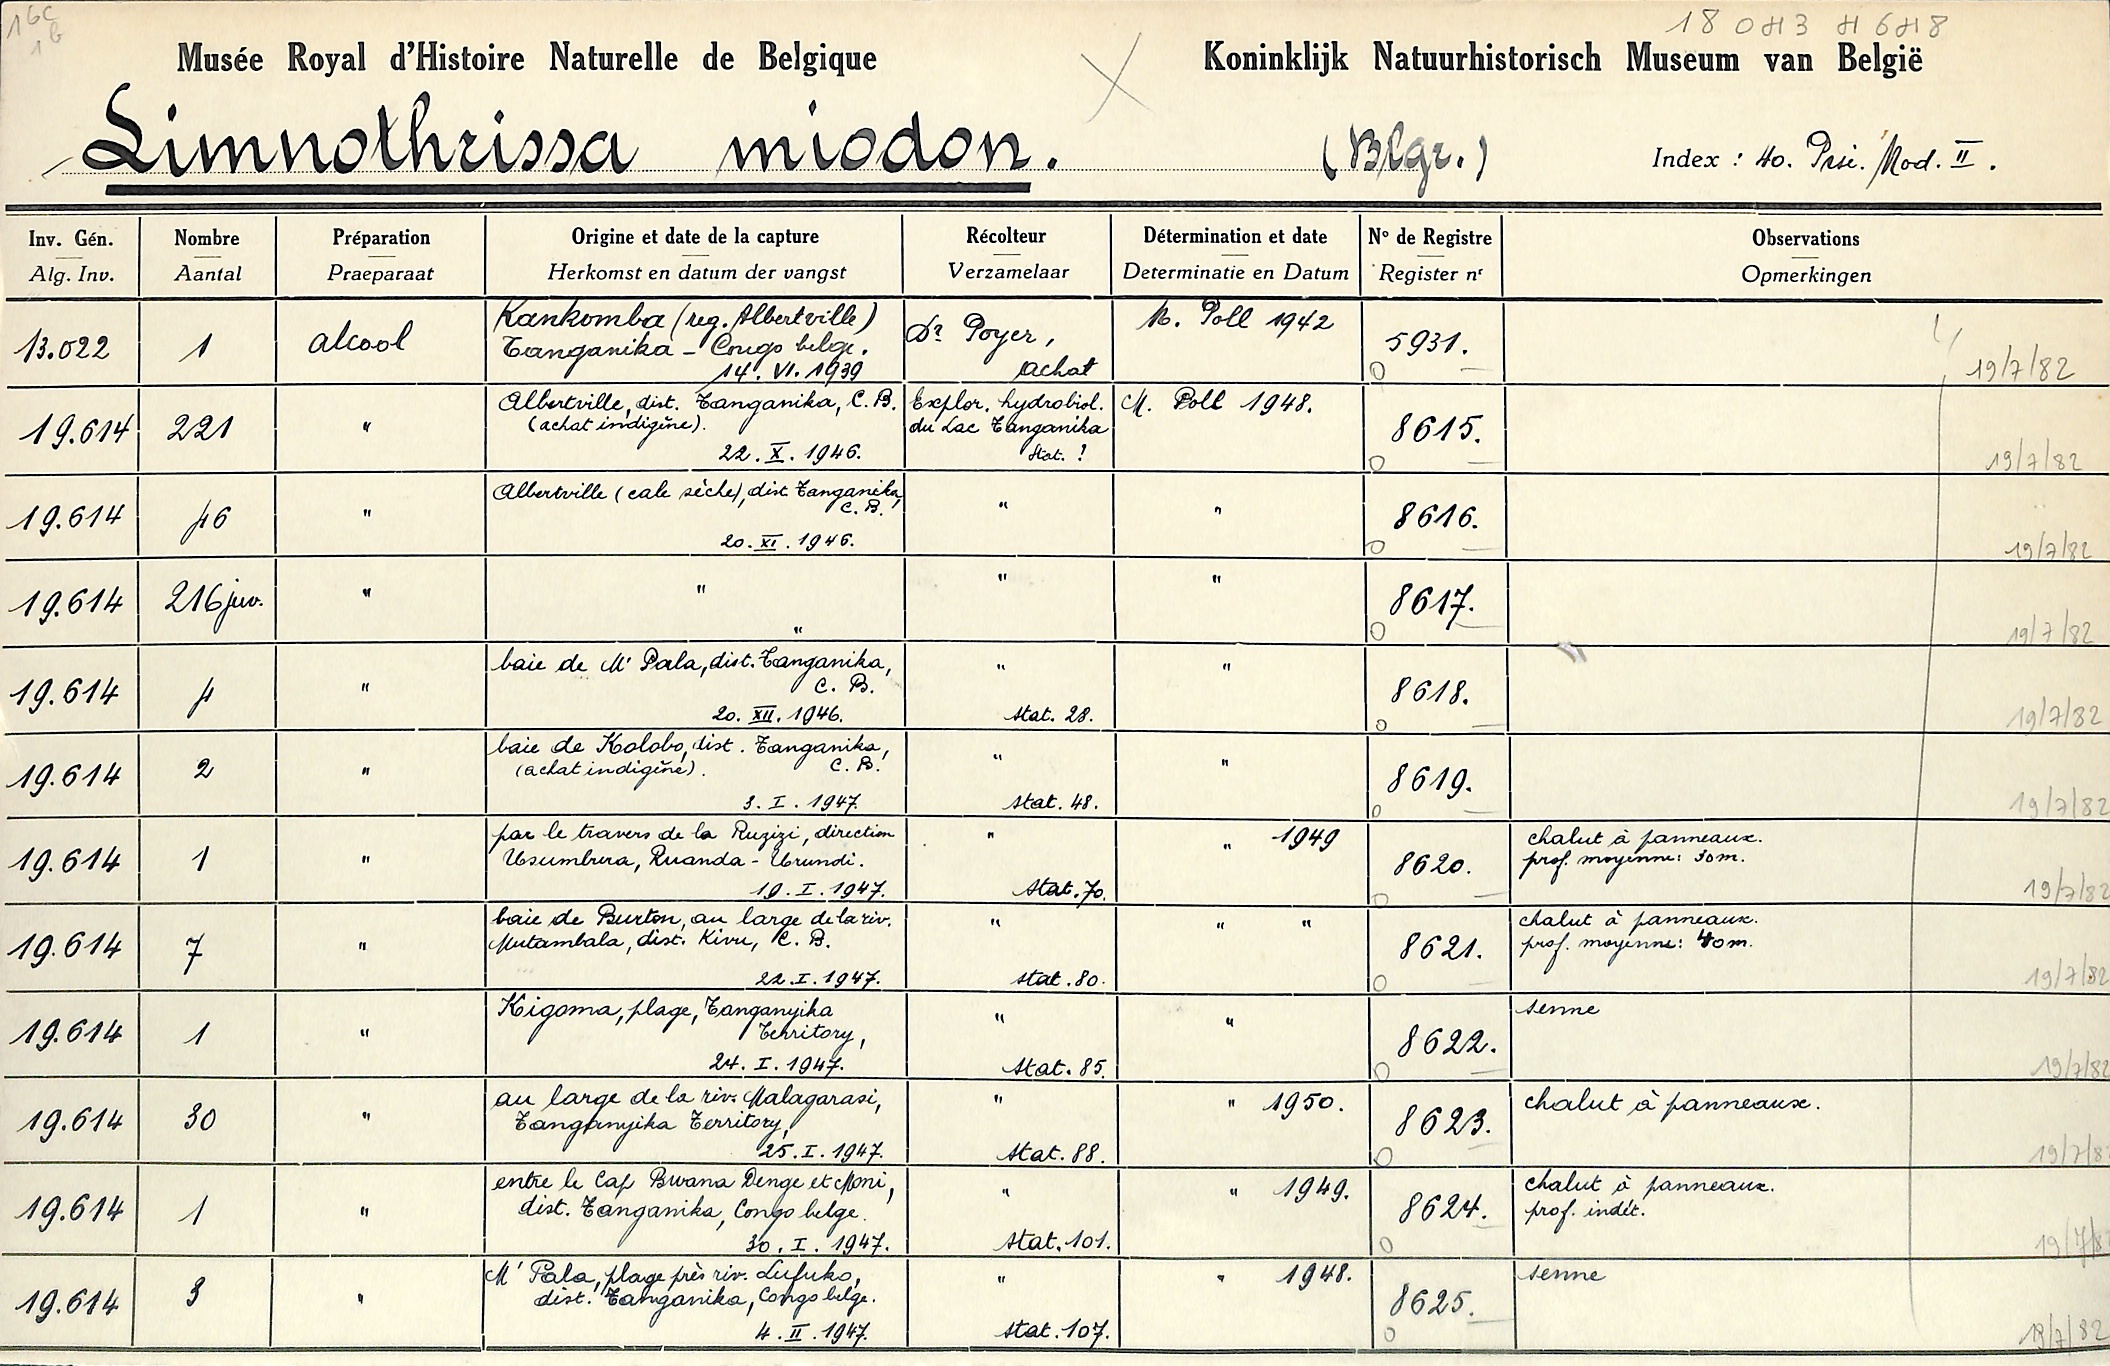 16c
1b
18 043 4648
Musée Royal d'Histoire Naturelle de Belgique
Koninklijk Natuurhistorisch Museum van België
Limnothrissa miodon. (Blgr.)
Index : 40. Prsi. Mod. II.
Inv. Gén. Nombre Préparation Origine et date de la capture Récolteur Détermination et date N° de Registre Observations
Alg. Inv. Aantal Praeparaat Herkomst en datum der vangst Verzamelaar Determinatie en Datum Register nr Opmerkingen
13.022 1 alcool
Kankomba (reg. Albertville)
Tanganika - Congo belge.
14. VI. 1939
Dr Poyer,
achat
M. Poll 1942
5931.
19/7/82
19.614 221 "
Albertville, dist. Tanganika, C. B.
(achat indigène).
22. X. 1946.
Explor. hydrobiol.
du Lac Tanganika
Stat. ?
M. Poll 1948.
8615.
19/7/82
19.614 46 "
Albertville (cale sèche), dist. Tanganika,
C. B.
20. XI. 1946.
" "
8616.
19/7/82
19.614 216 juv. "
"
"
" "
8617.
19/7/82
19.614 4 "
baie de M' Pala, dist. Tanganika,
C. B.
20. XII. 1946.
"
stat. 28.
"
8618.
19/7/82
19.614 2 "
baie de Kolobo, dist. Tanganika,
(achat indigène). C. B.
3. I. 1947.
"
stat. 48.
"
8619.
19/7/82
19.614 1 "
par le travers de la Ruzizi, direction
Usumbura, Ruanda - Urundi.
19. I. 1947.
"
stat. 70.
" 1949
8620.
chalut à panneaux.
prof. moyenne: 30m.
19/7/82
19.614 7 "
baie de Burton, au large de la riv.
Mutambala, dist. Kivu, C. B.
22. I. 1947.
"
stat. 80.
" "
8621.
chalut à panneaux.
prof. moyenne: 40m.
19/7/82
19.614 1 "
Kigoma, plage, Tanganyika
Territory,
24. I. 1947.
"
stat. 85.
"
8622.
senne
19/7/82
19.614 30 "
au large de la riv. Malagarasi,
Tanganyika Territory,
25. I. 1947.
"
stat. 88.
" 1950.
8623.
chalut à panneaux.
19/7/8
19.614 1 "
entre le Cap Bwana Denge et Moni,
dist. Tanganika, Congo belge.
30. I. 1947.
"
stat. 101.
" 1949.
8624.
chalut à panneaux.
prof. indét.
19/7/8
19.614 3 "
M' Pala, plage près riv. Lufuko,
dist. Tanganika, Congo belge.
4. II. 1947.
"
stat. 107.
" 1948.
8625.
senne
19/7/82